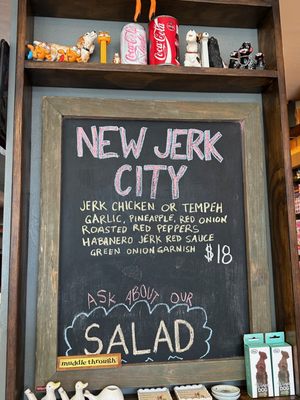 Coca-Cola
Coca-Cola
NEW JERK
CITY
JERK CHICKEN OR TEMPEH
GARLIC, PINEAPPLE, RED ONION
ROASTED RED PEPPERS
HABANERO JERK RED SAUCE
GREEN ONION GARNISH
$18
ASK ABOUT OUR
SALAD
muddle through